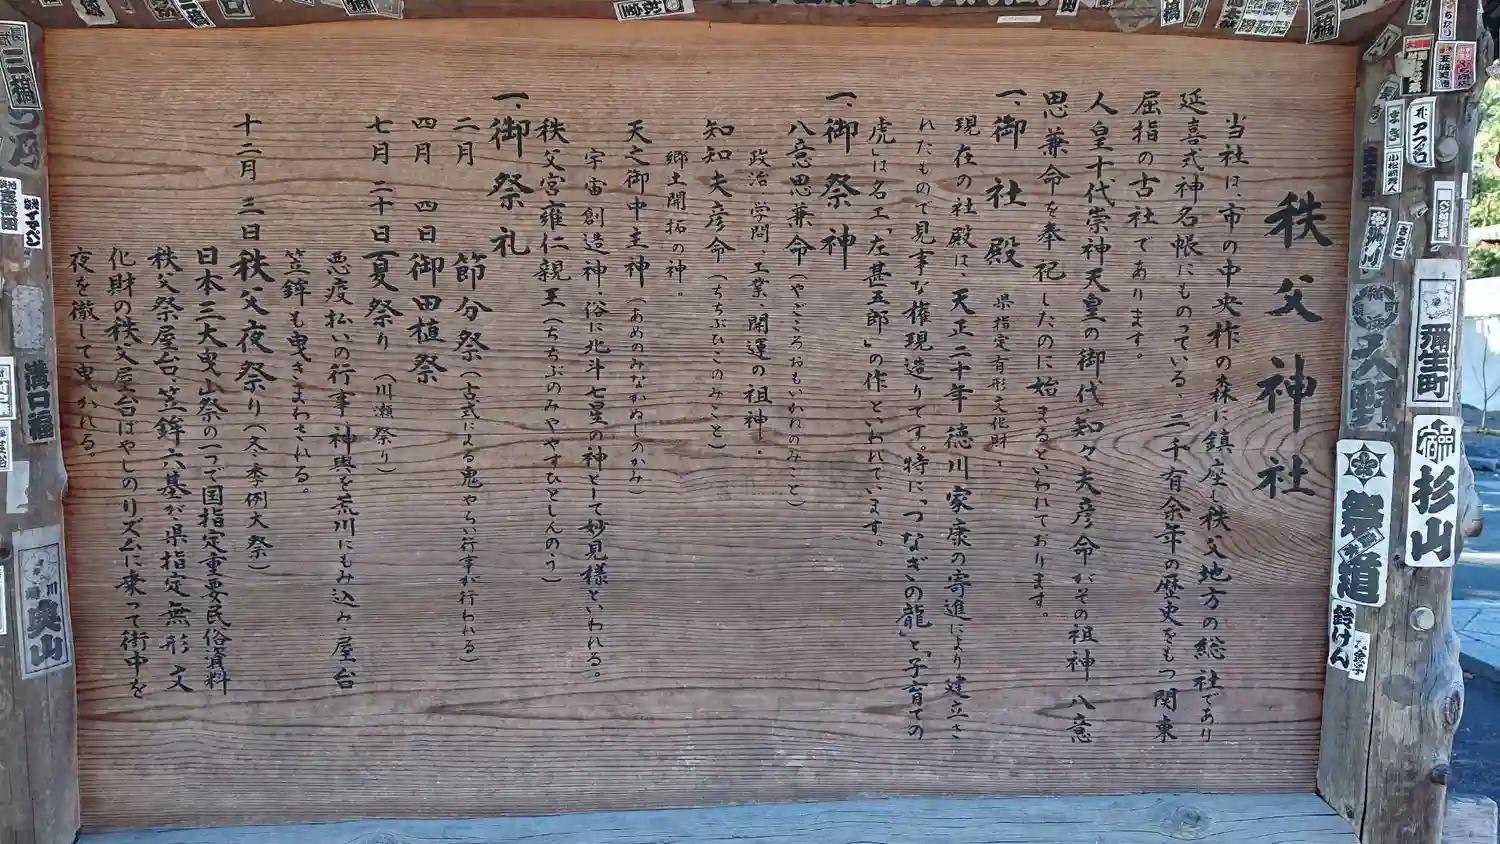 秩父神社
当社は、市の中央柞の森に鎮座し秩父地方の総社であり
延喜式神名帳にものっている、二千有余年の歴史をもつ関東
屈指の古社であります。
人皇十代崇神天皇の御代、知々夫彦命がその祖神八意
思兼命を奉祀したのに始まるといわれております。
一、御社殿 県指定有形文化財、
現在の社殿は、天正二十年徳川家康の寄進により建立さ
れたもので見事な権現造りです。特に「つなぎの龍」と「子育ての
虎」は名工「左甚五郎」の作といわれています。
一、御祭神
八意思兼命（やごころおもいかねのみこと）
政治、学問、工業、開運の祖神、
知知夫彦命（ちちぶひこのみこと）
郷土開拓の神。
天之御中主神（あめのみなかぬしのかみ）
宇宙創造神、俗に北斗七星の神として妙見様といわれる。
秩父宮雍仁親王（ちちぶのみややすひとしんのう）
一、御祭礼
二月 節分祭（古式による鬼やらい行事が行われる）
四月 四日 御田植祭
七月 二十日 夏祭り（川瀬祭り）
悪疫払いの行事、神輿を荒川にもみ込み、屋台
笠鉾も曳きまわされる。
十二月 三日 秩父夜祭り（冬季例大祭）
日本三大曳山祭の一つで国指定重要民俗資料
秩父祭屋台、笠鉾六基が県指定無形文
化財の秩父屋台ばやしのリズムに乗って街中を
夜を徹して曳かれる。
彌生町
杉山
祭道
鈴けん
溝口福
奥山